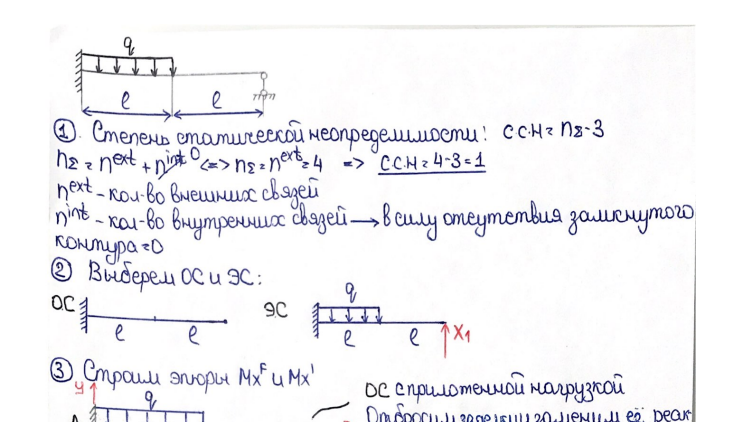 q
l l
① Степень статической неопределимости: ССН = nΣ-3
nΣ = n^ext + n^int 0 <=> nΣ = n^ext = 4 => ССН = 4-3 = 1
n^ext - кол-во внешних связей
n^int - кол-во внутренних связей → в силу отсутствия замкнутого
контура = 0
② Выберем ОС и ЭС:
q
ОС ЭС
l l l l X1
③ Строим эпюры Mx^F и Mx^1
y q ОС с приложенной нагрузкой
Отбросим заделку заменим её реак